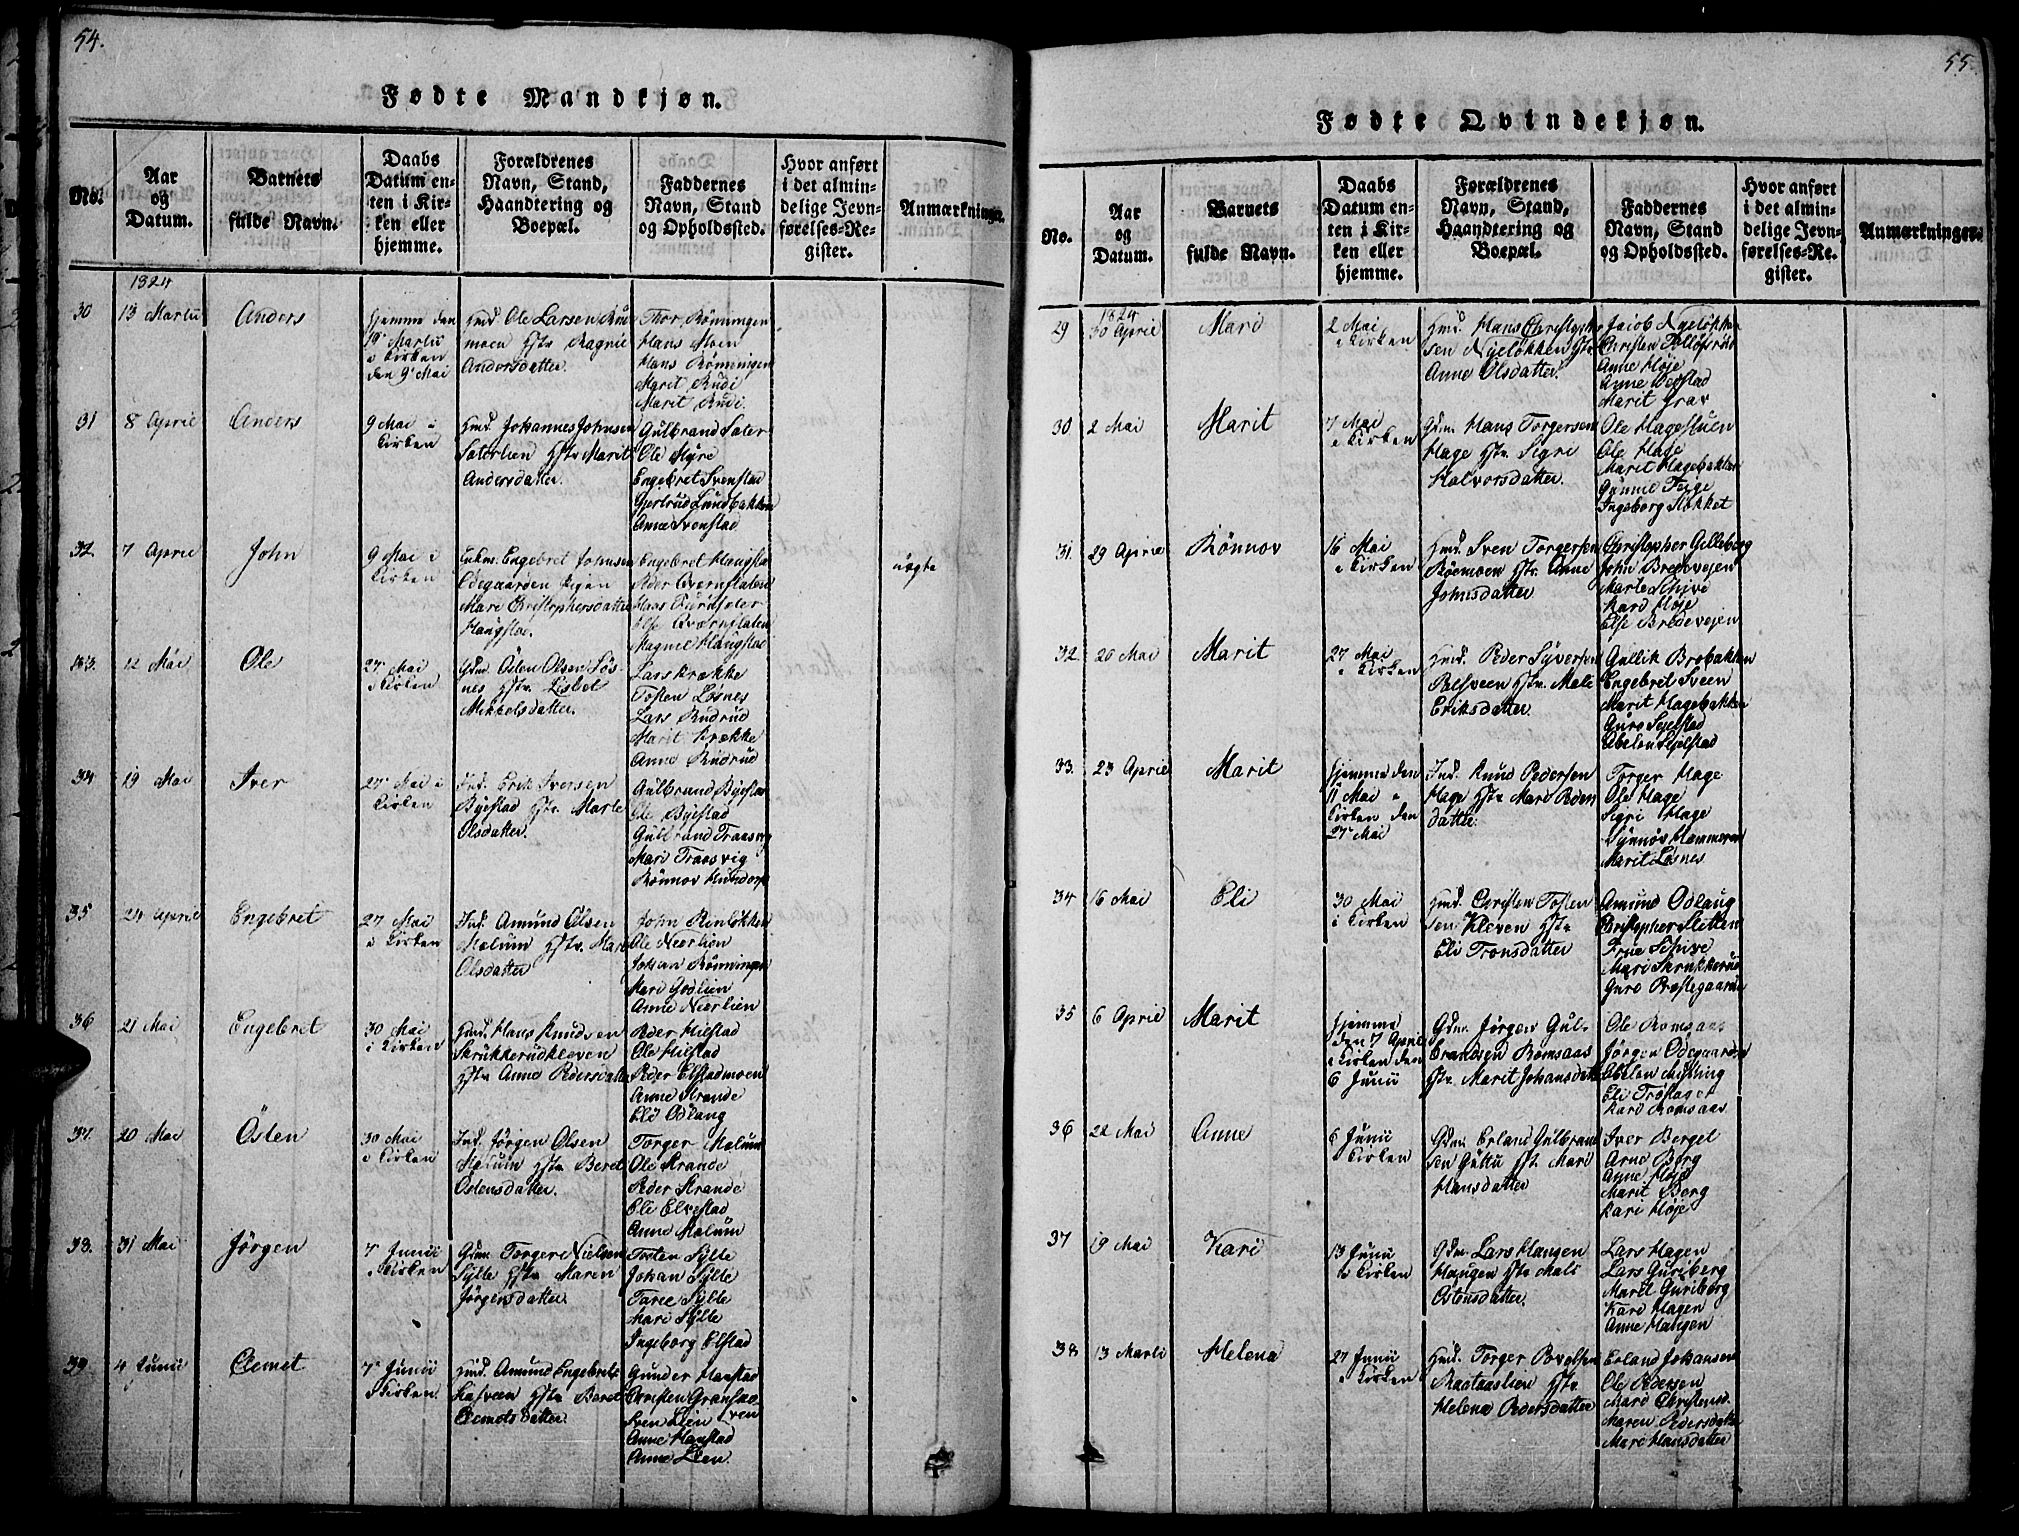 54.
Fødte Mandkjøn.
No.
Aar
og
Datum.
Barnets
fulde Navn.
Daabs
Datum en-
ten i Kir-
ken eller
hjemme.
Forældrenes
Navn, Stand,
Haandtering og
Boepæl.
Faddernes
Navn, Stand
og Opholdssted.
Hvor anført
i det almin-
delige Jevn-
førelses-Re-
gister.
Anmærkninger.
1824
30
13 Martii
Anders
hjemme den
19 Martii
i Kirken
den 9 Mai
Hmd. Ole Larsen
moen Hstr Ragnil
Andersdatter.
Thor Rönningen
Hans Moen
Hans Rönningen
Marit Rudi
Marit Rudi.
31
8 April
Anders
9 Mai i
Kirken
Hmd. Johannes Johnsen
Saterlien Hstr Marit
Andersdatter.
Gulbrand Sater
Ole Myre
Engebret Svenstad
Gjertrud Lundbakken
Anne Svenstad
32
7 April
John
9 Mai i
Kirken
Engebret Johnsen
Odegaarden Pigen
Mari Christophersdatter
Haugstad.
Engebret Haugstad
Peder Qvernflaten
Hans
Else Qvernflaten
Magnil Haugstad
uægte
33.
12 Mai
Ole
27 Mai
i Kirken
Gdm. Östen Olsen Løs-
nes Hstr. Lisbet
Mikkelsdatter.
Lars Krække
Tosten Løsnes
Lars Rudrud
Marit Krække
Anne Rudrud
34
19 Mai
Iver
27 Mai i
Kirken
Ind. Erik Iversen
Byestad Hstr Marte
Olsdatter.
Gulbrand Byestad
Ole Byestad
Gulbrand Traasvig
Mari Traasvig
Rönnov Hundorp
35
24 April
Engebret
27 Mai
i Kirken
Ind. Amund Olsen
Molum Hstr. Mari
Olsdatter
John Rinløkken
Ole Neerlien
Johan Rönningen
Mari Godlien
Anne Neerlien
36
21 Mai
Engebret
30 Mai
i Kirken
Hmd. Hans Knudsen
Skrukkerudkleven
Hstr Anne Pedersdatter
Peder Hilstad
Ole Hilstad
Peder Elstadmoen
Anne Strande
Eli Odlaug
37.
20 Mai
Östen
30 Mai
i Kirken
Ind. Jörgen Olsen
Molum Hstr Beret
Östensdatter.
Torger Molum
Ole Strande
Peder Strande
Eli Elvestad
Anne Molum
38.
31 Mai
Jörgen
7 Junii
i Kirken
Gdm. Torger Nielsen
Sylte Hstr Maren
Jörgensdatter.
Tosten Sylte
Johan Sylte
Tarie Sylte
Mari Sylte
Ingeborg Elstad
39
4 Junii
Clemet
7 Junii
i Kirken
Hmd. Amund Engebrets
Hstr Beret
Clemetsdatter
Gunder Haustad
Christen
Sven Lien
Anne Haustad
Anne Lien.
55.
Fødte Qvindekjøn.
No.
Aar
og
Datum.
Barnets
fulde Navn.
Daabs
Datum en-
ten i Kir-
ken eller
hjemme.
Forældrenes
Navn, Stand,
Haandtering og
Boepæl.
Faddernes
Navn, Stand
og Opholdssted.
Hvor anført
i det almin-
delige Jevn-
førelses-Re-
gister.
Anmærkninger.
1824
29
30 April
Mari
2 Mai
i Kirken
Hmd. Hans Christoph
sen Nyeløkken Hstr
Anne Olsdatter.
Jacob Nyeløkken
Christen
Anne Høje
Anne
Marit Grav
30
2 Mai
Marit
7 Mai
i Kirken
Gdm. Hans Torgersen
Hage Hstr. Sigri
Halvorsdatter.
Ole Hagestuen
Ole Hage
Marit Hagebakken
Teige
Ingeborg Stokket
31.
29 April
Rönnov
16 Mai
i Kirken
Hmd. Sven Torgersen
Röemoen Hstr. Anne
Johnsdatter
Christopher Gilleberg
John Bredevejen
Marte Schive
Kari Høje
Else Bredevejen
32
20 Mai
Marit
27 Mai
i Kirken
Hmd. Peder Syversen
Hstr. Mali
Eriksdatter.
Gullik Brobakken
Engebret Sveen
Marit Hagebakken
Guro Sejelstad
Abelon Sejelstad
33.
23 April
Marit
hjemme den
11 Mai i
Kirken den
27 Mai
Ind. Knud Pedersen
Hage Hstr Mari
datter.
Torger Hage
Ole Hage
Sigri Hage
Synnøv Hammeren
Marit Løsnes
34
16 Mai
Eli
30 Mai
i Kirken
Hmd. Christen Tosten
sen Kleven Hstr
Eli Tronsdatter
Amund Odlaug
Christopher Sletten
Schive
Mari Skrukkerud
Guro Prestegaarden
35
6 April
Marit
hjemme
den 7 April
i Kirken den
6 Junii
Gdm. Jørgen Gul-
brandsen Romsaas
Hstr. Marit Johansdatter
Ole Romsaas
Jørgen Odegaarden
Abelon Mylling
Eli
Kari Romsaas
36
22 Mai
Anne
6 Junii
i Kirken
Gdm. Erland Gulbrand
sen Guttu Hstr. Mari
Hansdatter
Iver Bergel
Arne Berg
Anne Høje
Marit Berg
Kari Høje
37
19 Mai
Kari
13 Junii
i Kirken
Gdm. Lars Haugen
Haugen Hstr Mali
Ostensdatter.
Lars Hagen
Lars Guriberg
Marit Guriberg
Kari Hagen
Anne Haugen
38
13 Marti
Helena
27 Junii
i Kirken
Hmd. Torger Bovelsen
Raataaslien Hstr
Helena Pedersdatter
Erland Johansen
Ole Pedersen
Mari Christensd.
Maren Pedersdatter
Mari Hansdatter